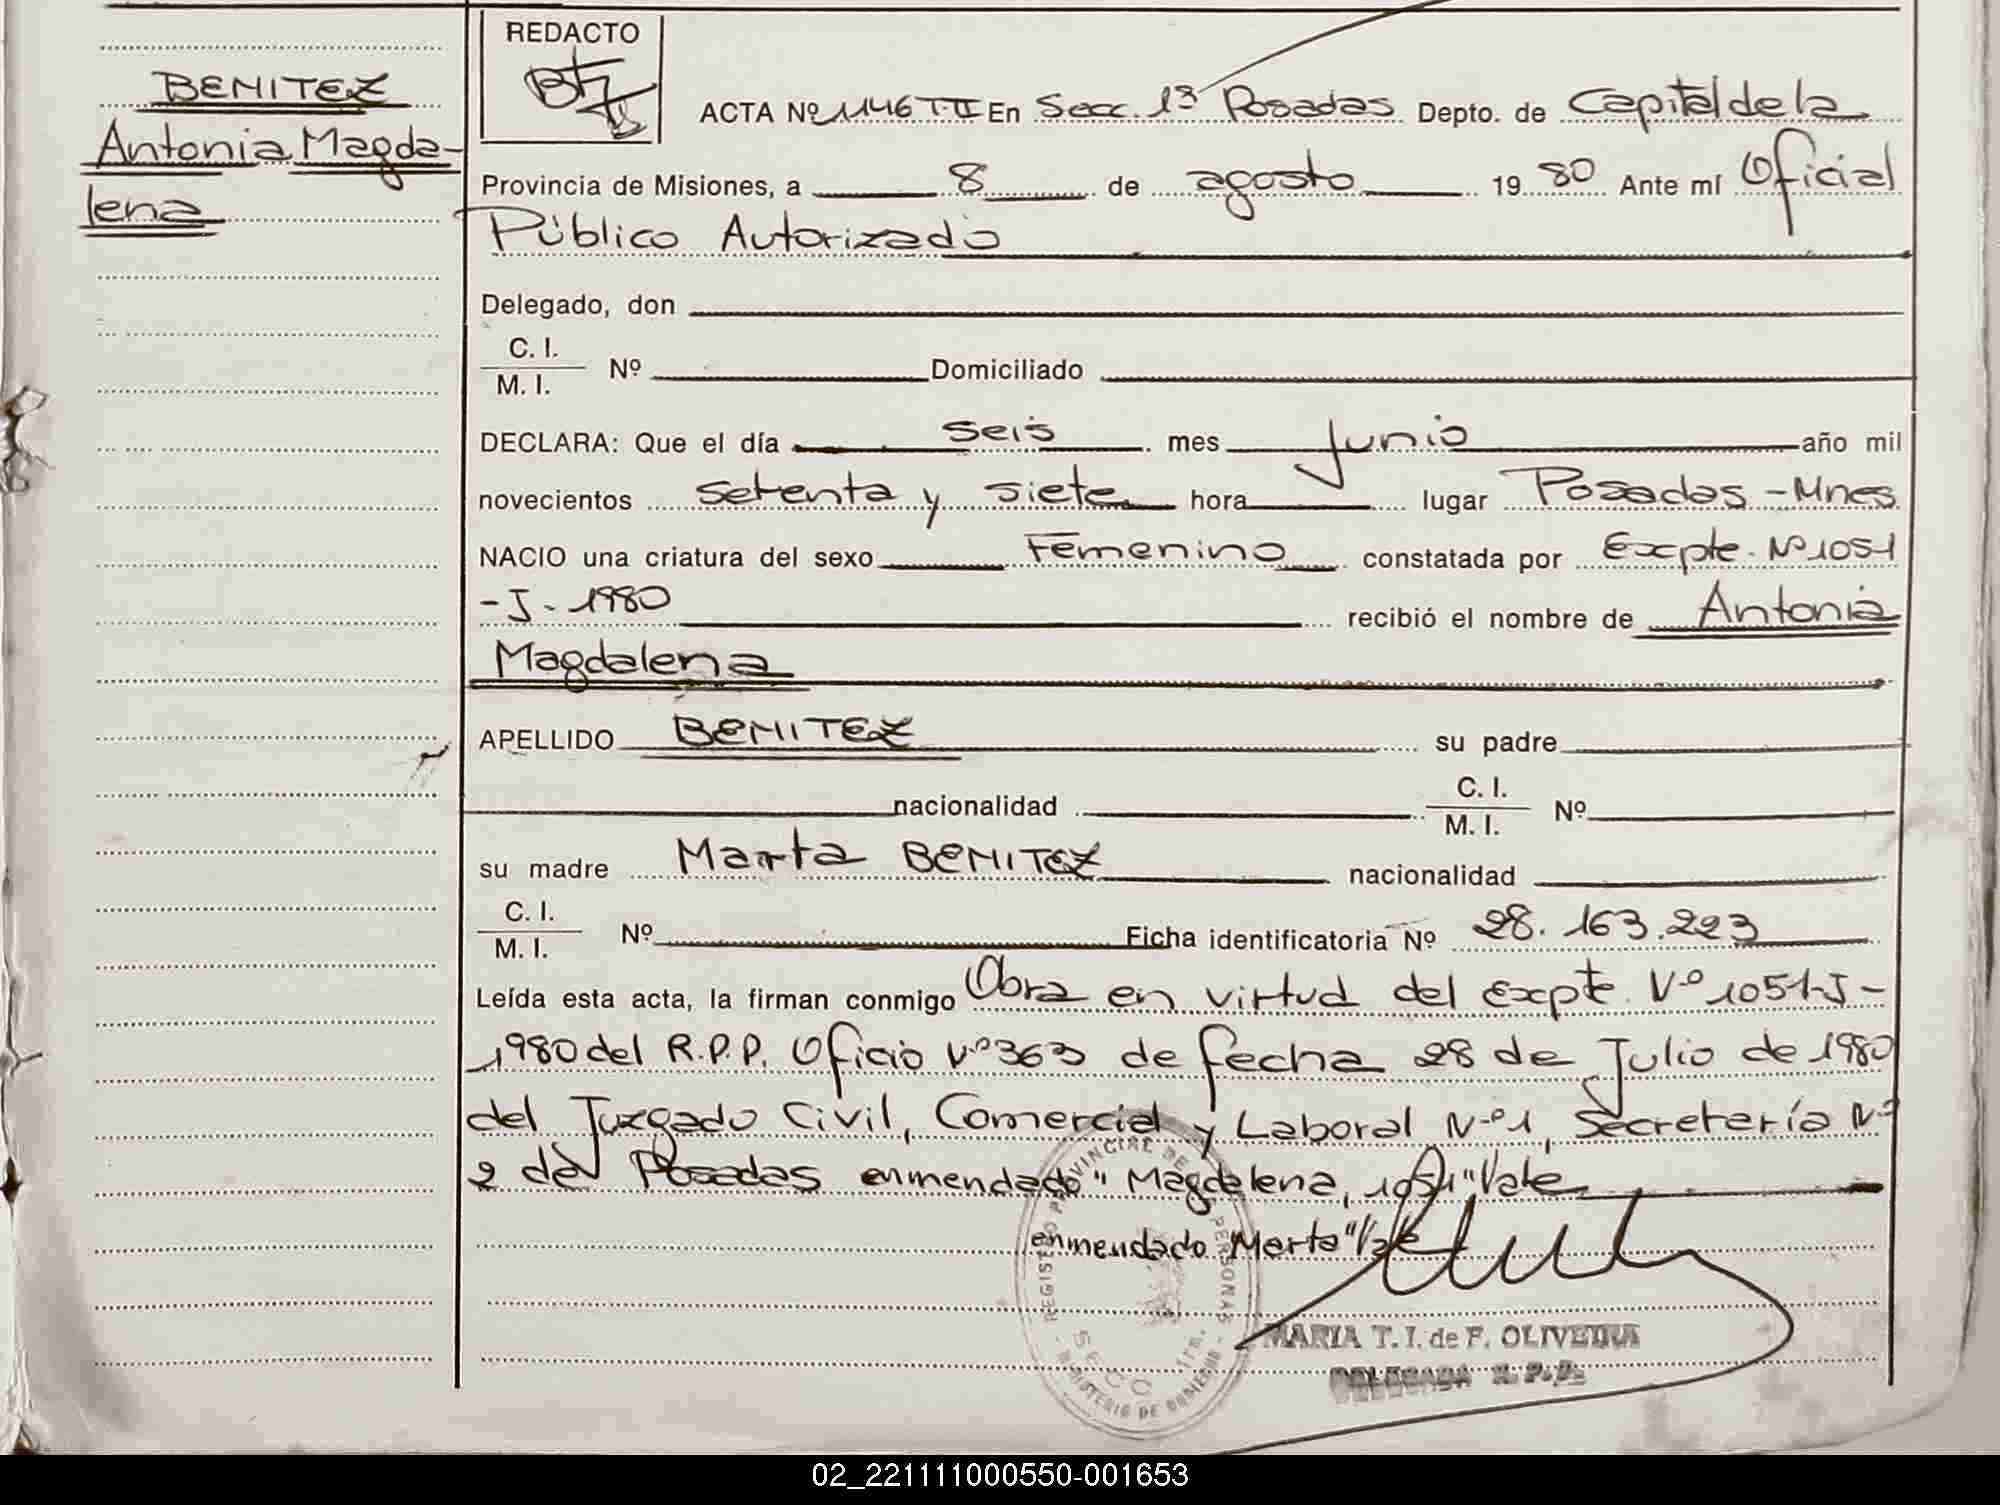 BENITEZ
Antonia Magda-
lena
REDACTO
ACTA Nº 1146 T-II En Secc. 1ª Posadas Depto. de Capital de la
Provincia de Misiones, a 8 de agosto 1980 Ante mí Oficial
Público Autorizado
Delegado, don
C. I.
M. I. Nº Domiciliado
DECLARA: Que el día seis mes Junio año mil
novecientos setenta y siete hora lugar Posadas - Mnes.
NACIO una criatura del sexo Femenino constatada por Expte. Nº 1051
-J- 1980 recibió el nombre de Antonia
Magdalena
APELLIDO BENITEZ su padre
nacionalidad C. I.
M. I. Nº
su madre Marta BENITEZ nacionalidad
C. I.
M. I. Nº Ficha identificatoria Nº 28.163.223
Leída esta acta, la firman conmigo Obra en virtud del Expte. Nº 1051-J-
1980 del R.P.P. Oficio Nº 363 de fecha 28 de Julio de 1980
del Juzgado Civil, Comercial y Laboral Nº 1, Secretería Nº
2 de Posadas enmendado "Magdalena, 1051" Vale
enmendado "Marta" Vale
REGISTRO PROVINCIAL DE PERSONAS
SECC. 1ra.
MINISTERIO DE GOBIERNO
MARIA T. I. de F. OLIVEIRA
DELEGADA R. P. P.
02_221111000550-001653